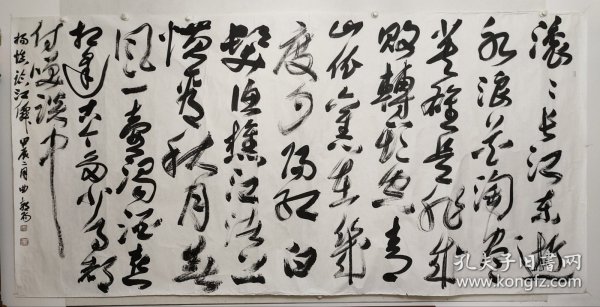 滚〻长江东逝
水浪花淘尽
英雄是非成
败转头空青
山依旧在几
度夕阳红白
发渔樵江渚上
惯看秋月春
风一壶浊酒喜
相逢古今多少事都
付笑谈中
杨慎临江仙 甲辰二月
孔夫子旧书网
www.kongfz.com